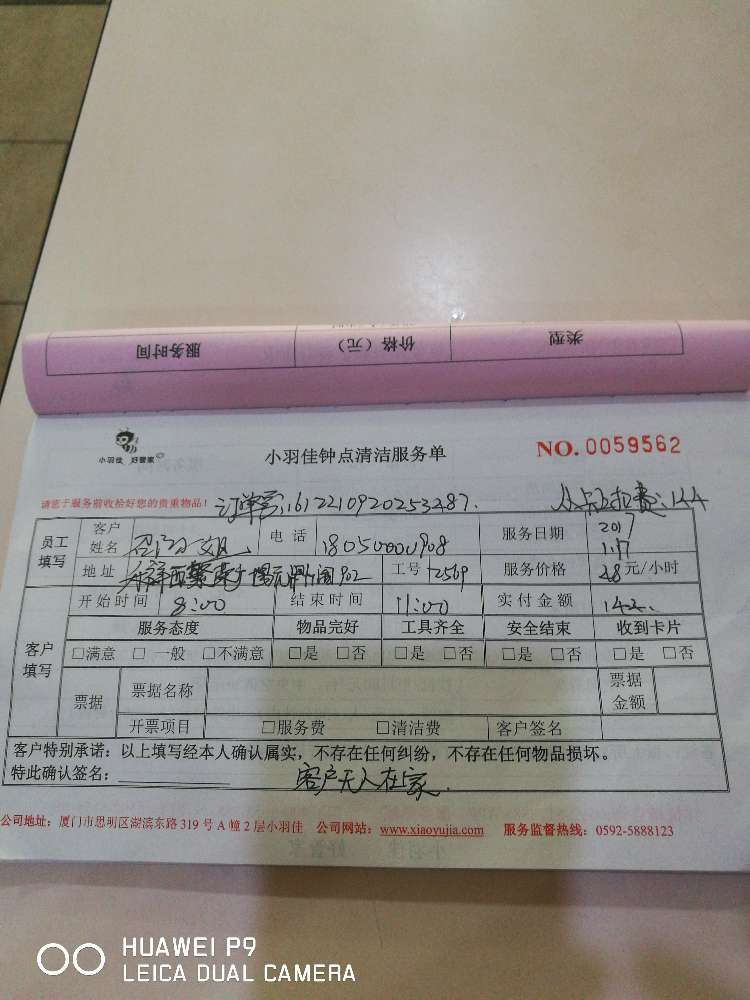 服务时间 价格（元） 类型
小羽佳 好管家
小羽佳钟点清洁服务单
NO. 0059562
请您于服务前收拾好您的贵重物品！ 订单号:1612210920253487. 从卡内扣费:144
员工填写 客户姓名 电话 18050000908 服务日期 2017 1.17
地址 902 工号 2569 服务价格 28元/小时
客户填写 开始时间 8:00 结束时间 11:00 实付金额
服务态度 物品完好 工具齐全 安全结束 收到卡片
□满意 □一般 □不满意 □是 □否 □是 □否 □是 □否 □是 □否
票据 票据名称 票据金额
开票项目 □服务费 □清洁费 客户签名
客户特别承诺：以上填写经本人确认属实，不存在任何纠纷，不存在任何物品损坏。
特此确认签名： 客户无人在家.
公司地址：厦门市思明区湖滨东路319号A幢2层小羽佳 公司网站：www.xiaoyujia.com 服务监督热线：0592-5888123
HUAWEI P9
LEICA DUAL CAMERA